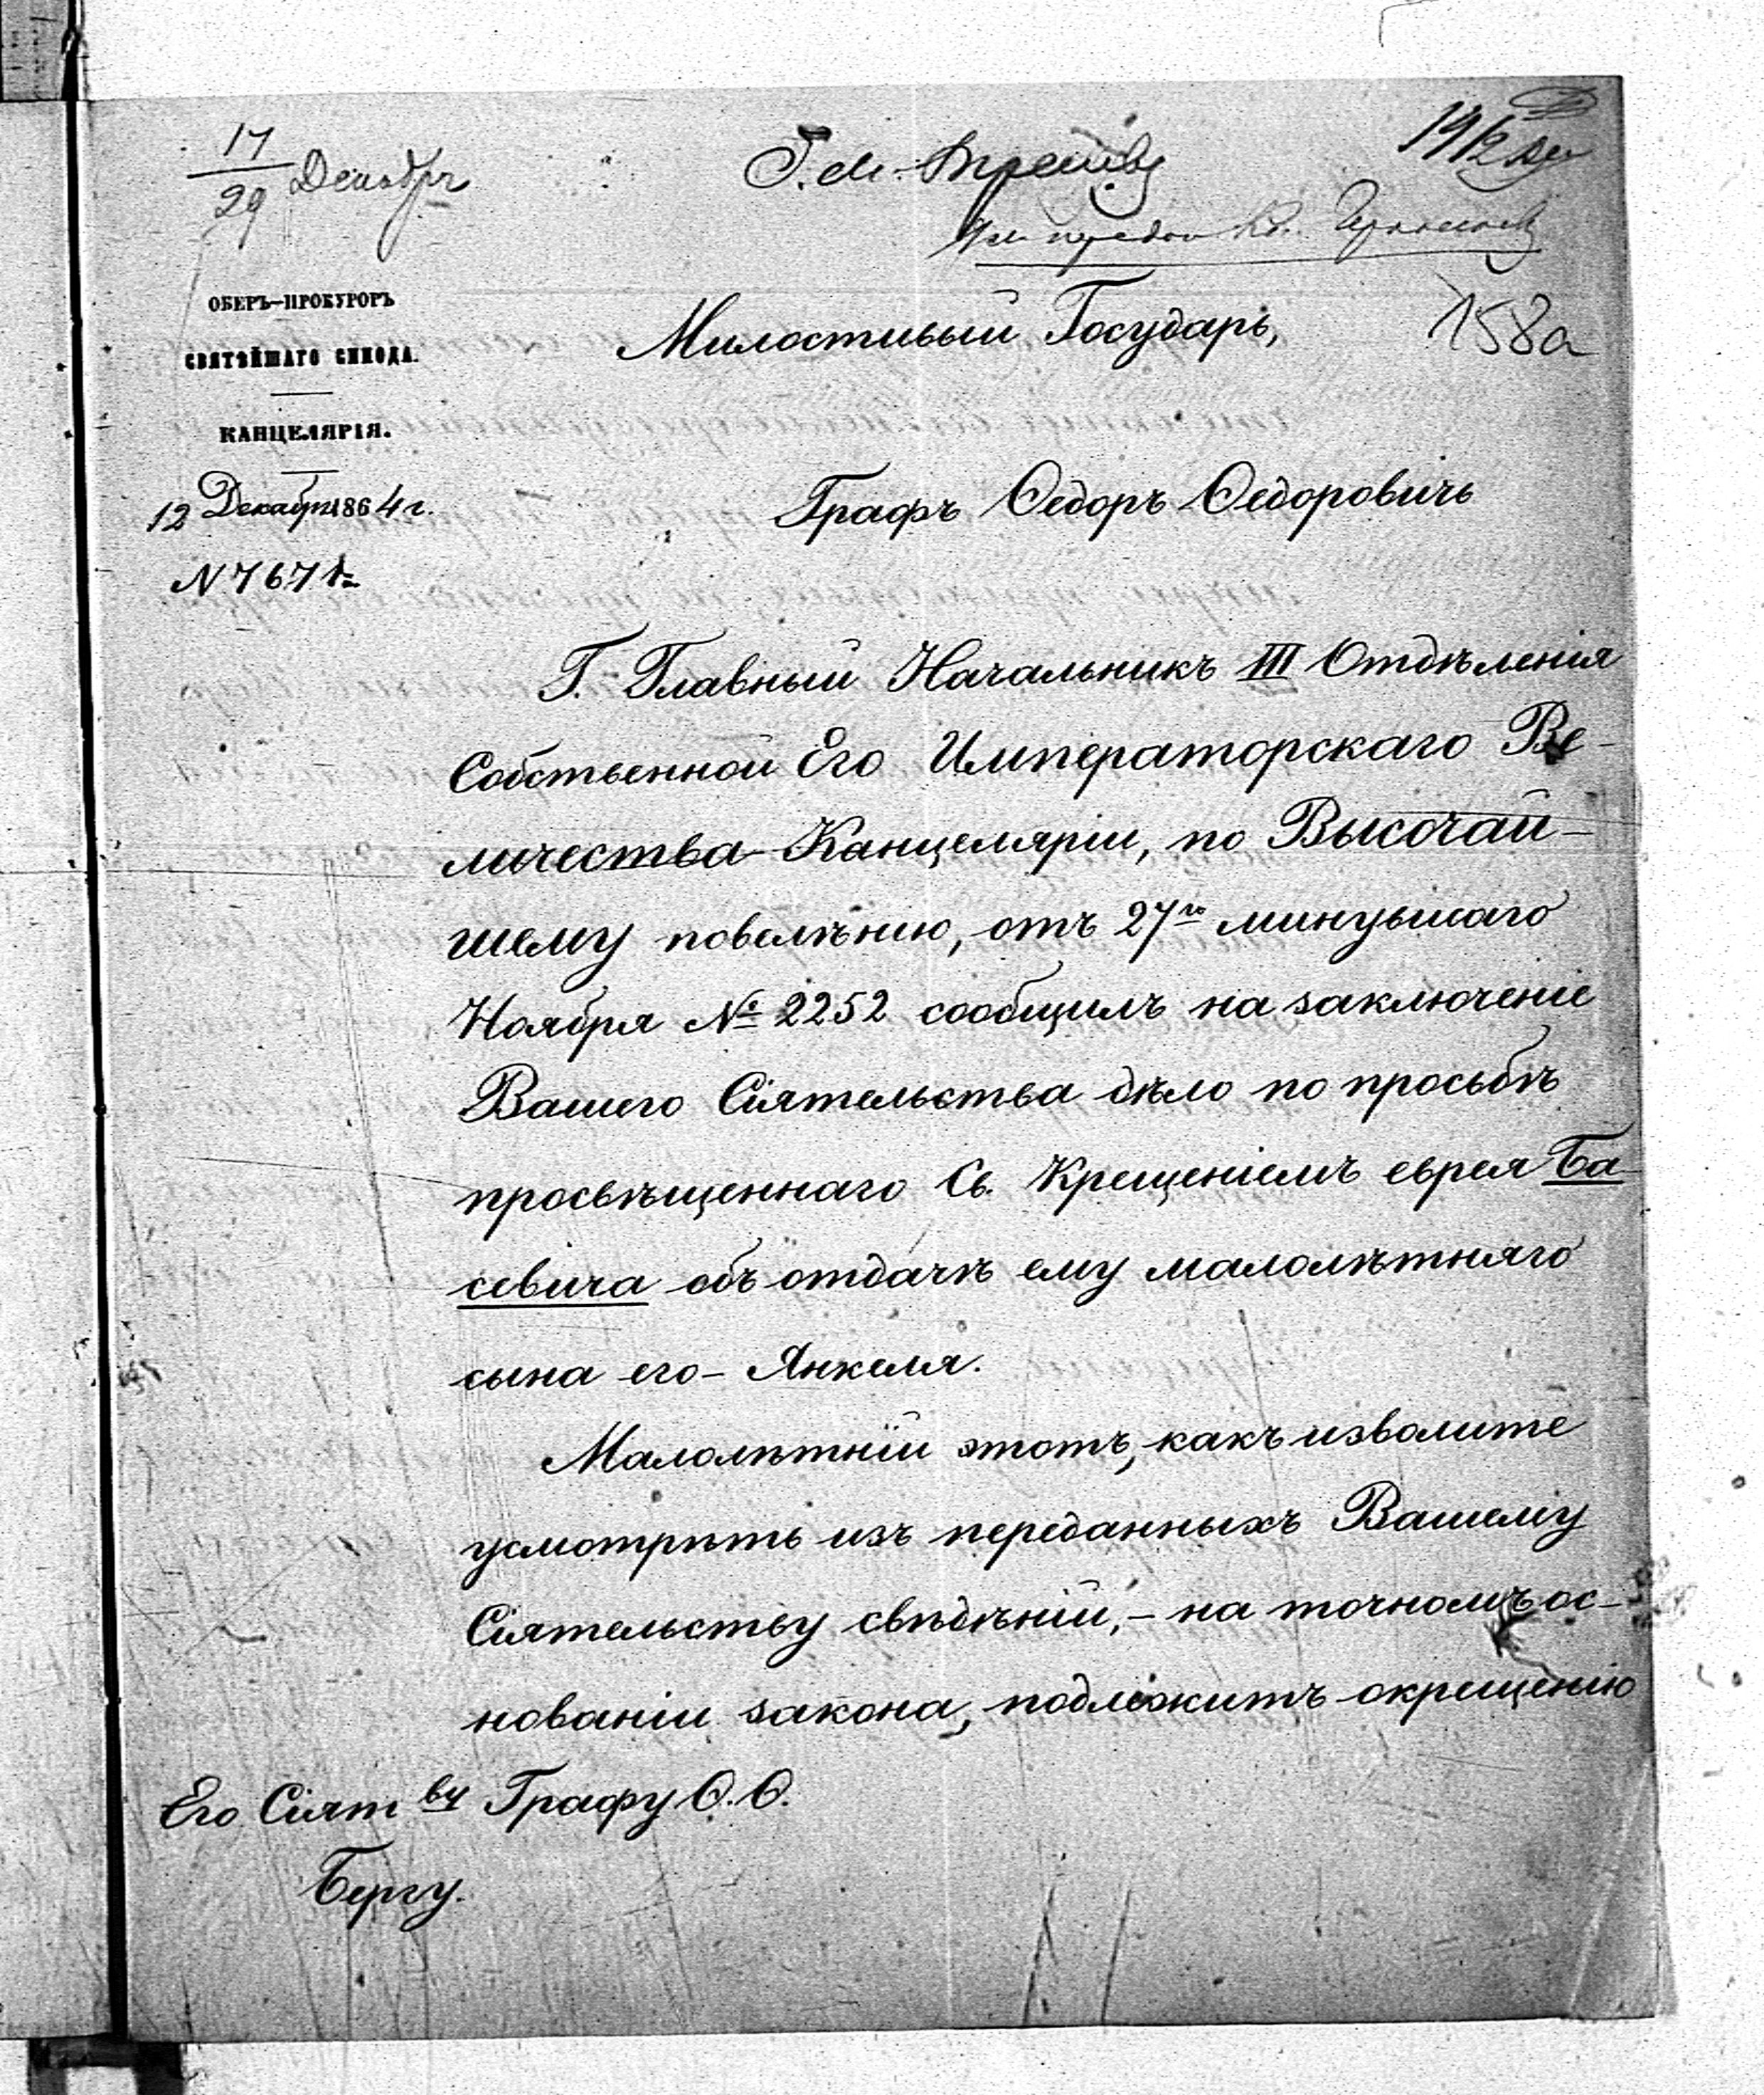 17
29 Декабря
Г. М. Трепову
158а
ОБЕРЪ-ПРОКУРОРЪ
СВЯТѢЙШАГО СИНОДА.
КАНЦЕЛЯРІЯ.
12 Декабря 1864 г.
N 7671
Милостивый Государь,
Графъ Ѳедоръ Ѳедоровичъ
Г. Главный Начальникъ III Отдѣленія
Собственной Его Императорскаго Ве-
личества Канцеляріи, по Высочай-
шему повелѣнію, отъ 27го минувшаго
Ноября № 2252 сообщилъ на заключеніе
Вашего Сіятельства дѣло по просьбѣ
просвѣщеннаго Св. Крещеніемъ еврея Ба-
севича объ отдачѣ ему малолѣтняго
сына его - Янкеля.
Малолѣтній этотъ, какъ изволите
усмотрѣть изъ переданныхъ Вашему
Сіятельству свѣдѣній, - на точномъ ос-
нованіи закона, подлежитъ окрещенію
Его Сіятву Графу Ѳ. Ѳ.
Бергу.